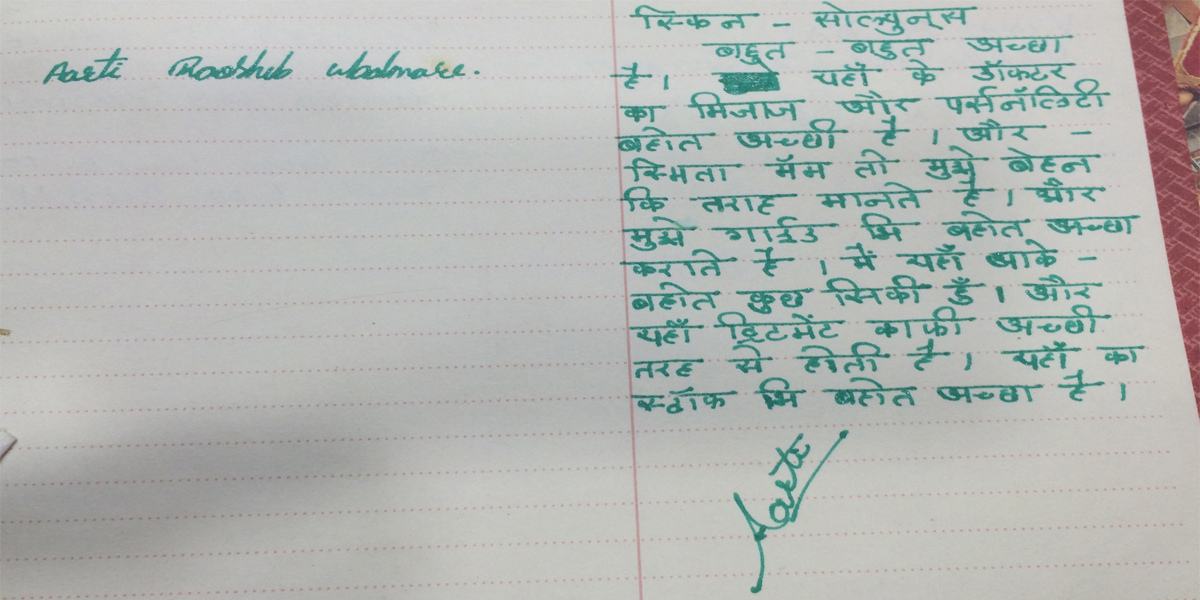 Aarti
स्किन - सोल्युन्स
बहुत - बहुत अच्छा
है। यहाँ के डॉक्टर
का मिजाज और पर्सनॉलिटी
बहोत अच्छी है । और -
स्मिता मॅम तो मुझे बेहन
कि तराह मानते है । और
मुझे गाईड भि बहोत अच्छा
कराते है । मैं यहाँ आके -
बहोत कुछ सिकी हुँ । और
यहाँ ट्रिटमेंट काफी अच्छी
तरह से होती है । यहाँ का
स्टॉफ भि बहोत अच्छा है ।